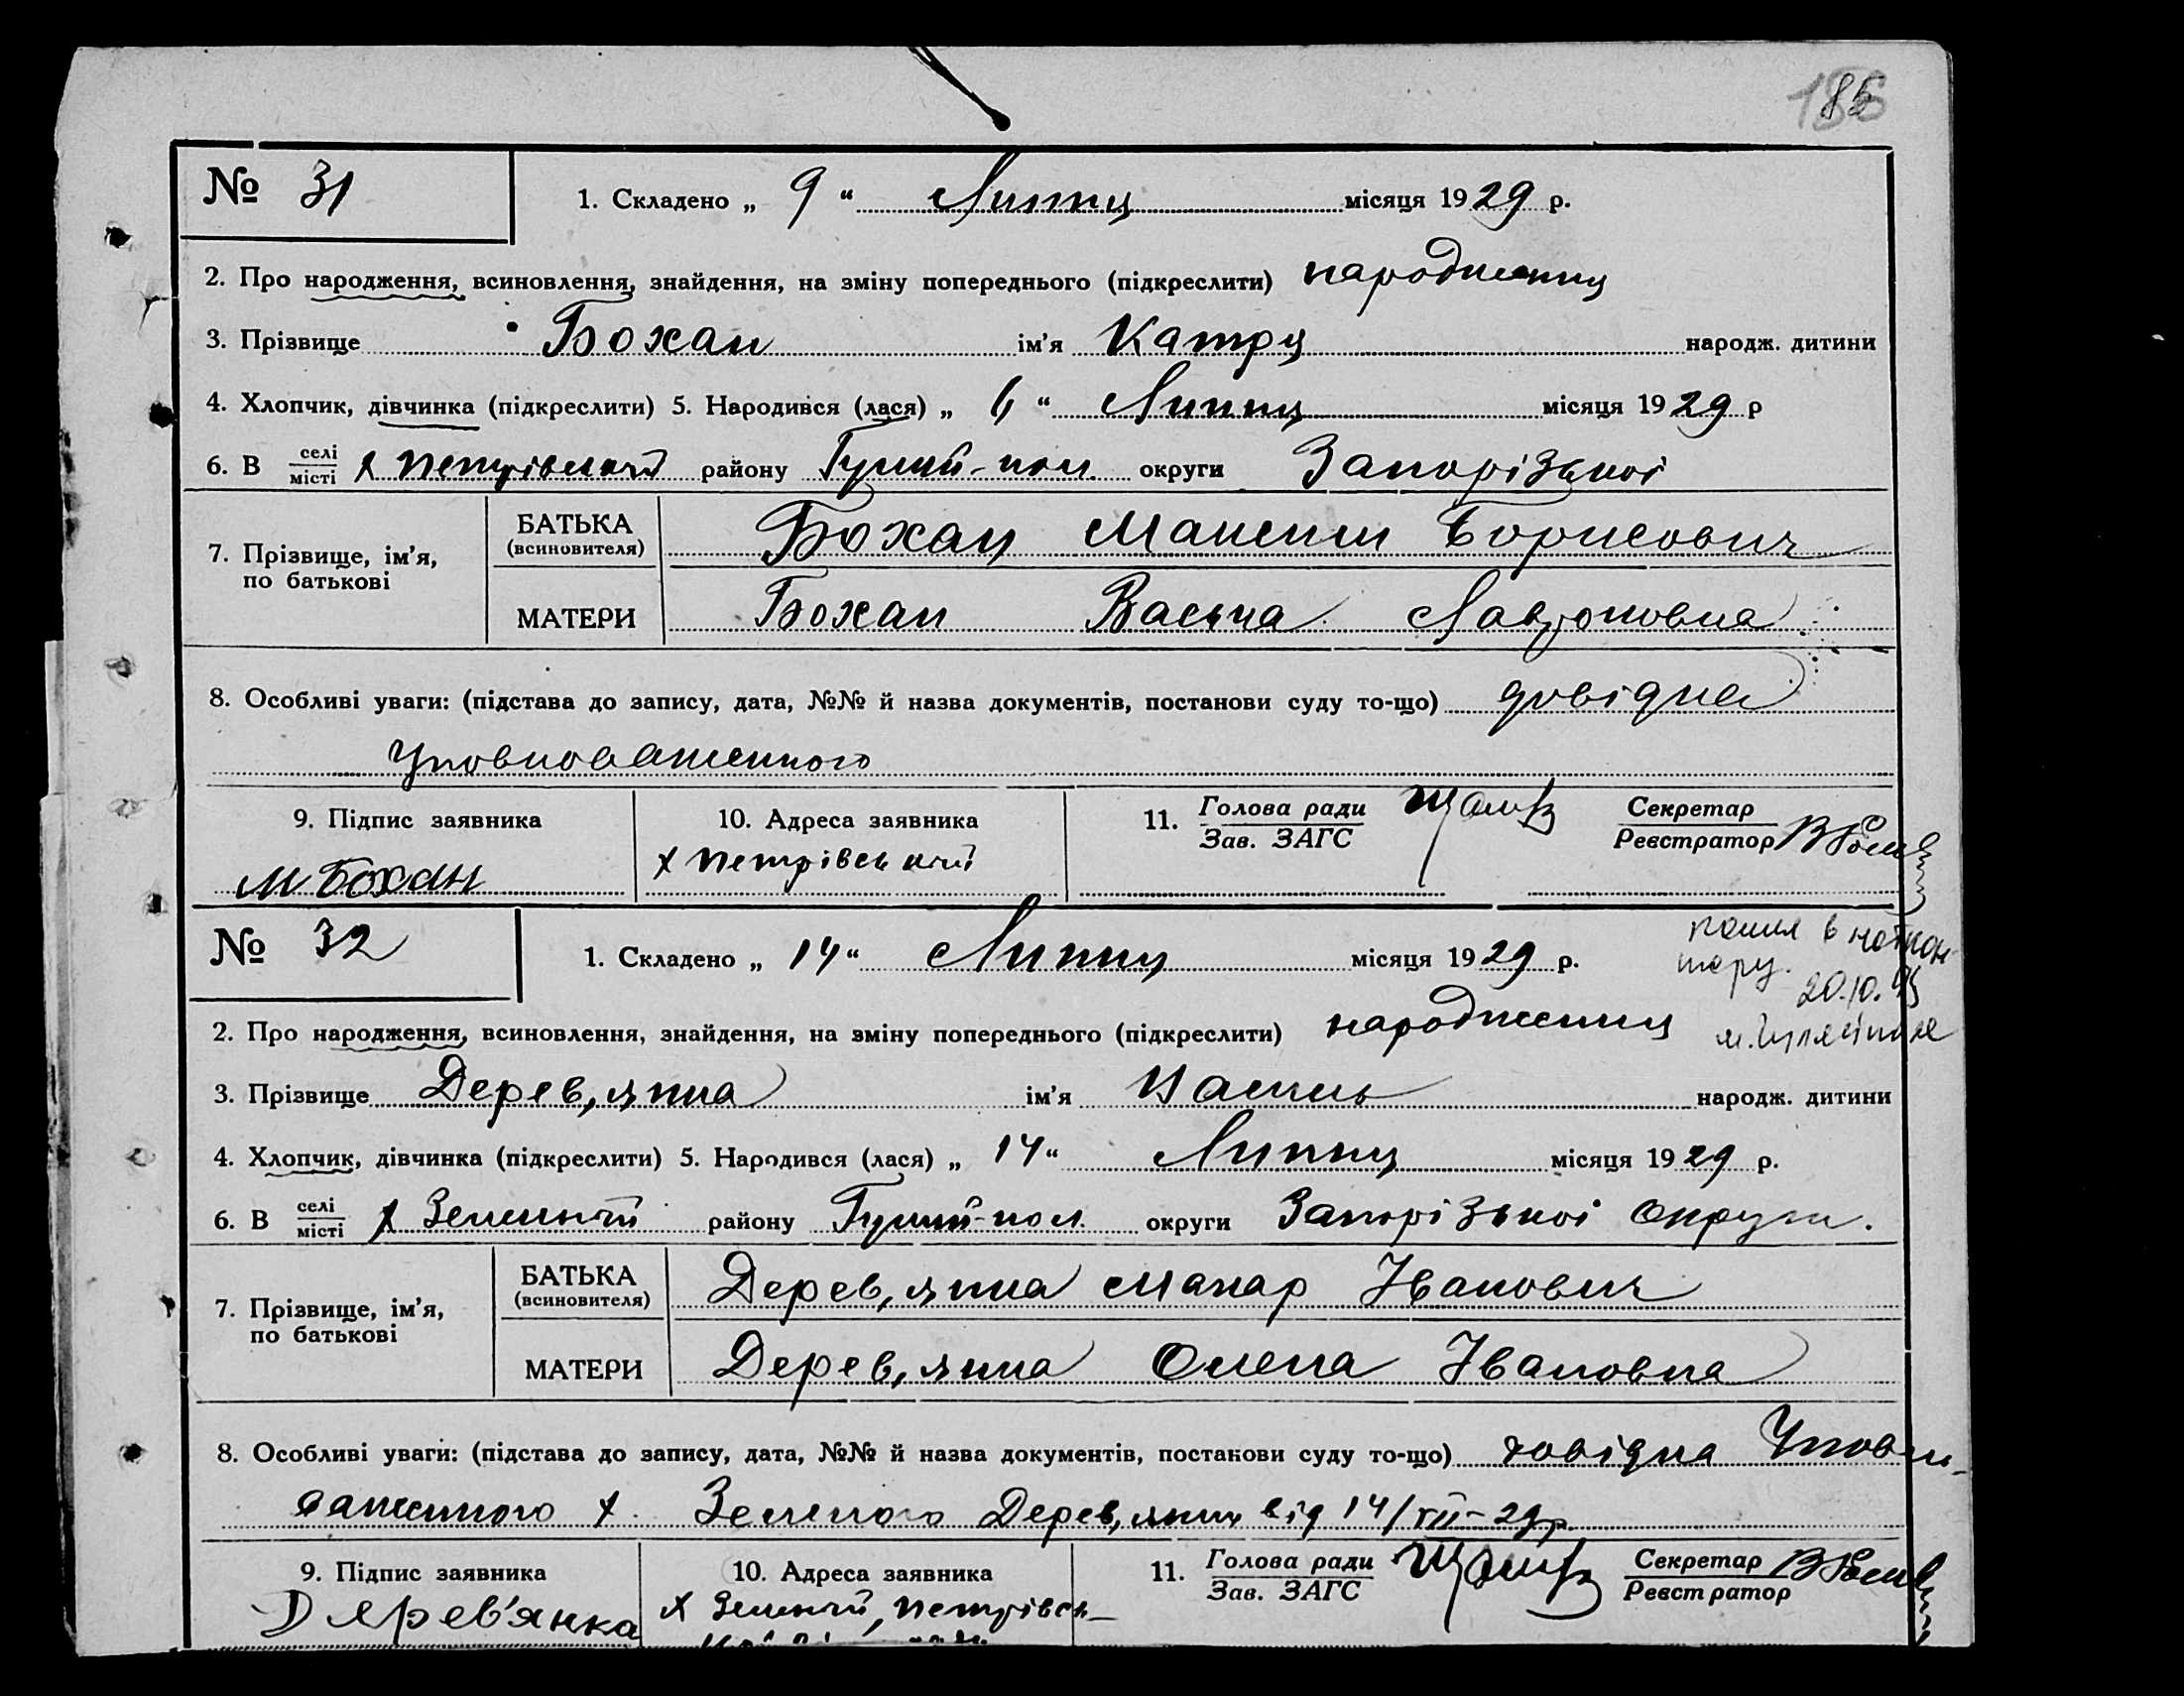 85
№ 31
1. Складено „ 9 “ Липня місяця 1929 р.
2. Про народження, всиновлення, знайдення, на зміну попереднього (підкреслити) народження
3. Прізвище Бохан ім’я Катря народж. дитини
4. Хлопчик, дівчинка (підкреслити) 5. Народився (лася) „ 6 “ Липня місяця 1929 р
6. В селі/місті х Петрівський району Гуляй-пол. округи Запорізької
7. Прізвище, ім’я, по батькові
БАТЬКА (всиновителя) Бохан Максим Борисович
МАТЕРИ Бохан Васька
8. Особливі уваги: (підстава до запису, дата, №№ й назва документів, постанови суду то-що) довідка
Уповноваженного
9. Підпис заявника 10. Адреса заявника 11. Голова ради/Зав. ЗАГС Секретар/Реєстратор
М Бохан х Петрівський
№ 32
1. Складено „ 14 “ Липня місяця 1929 р.
20.10.
2. Про народження, всиновлення, знайдення, на зміну попереднього (підкреслити) народження
3. Прізвище Дерев,янка ім’я Василь народж. дитини
4. Хлопчик, дівчинка (підкреслити) 5. Народився (лася) „ 14 “ Липня місяця 1929 р.
6. В селі/місті х Зелений району Гуляй-пол. округи Запорізької Округи.
7. Прізвище, ім’я, по батькові
БАТЬКА (всиновителя) Дерев,янка Макар Іванович
МАТЕРИ Дерев,янка Олена Івановна
8. Особливі уваги: (підстава до запису, дата, №№ й назва документів, постанови суду то-що) довідка Уповно-
важенного х. Зеленого Дерев,янки від 14/VII–29р
9. Підпис заявника 10. Адреса заявника 11. Голова ради/Зав. ЗАГС Секретар/Реєстратор
Дярев’янка х Зелений, Петрівсь-